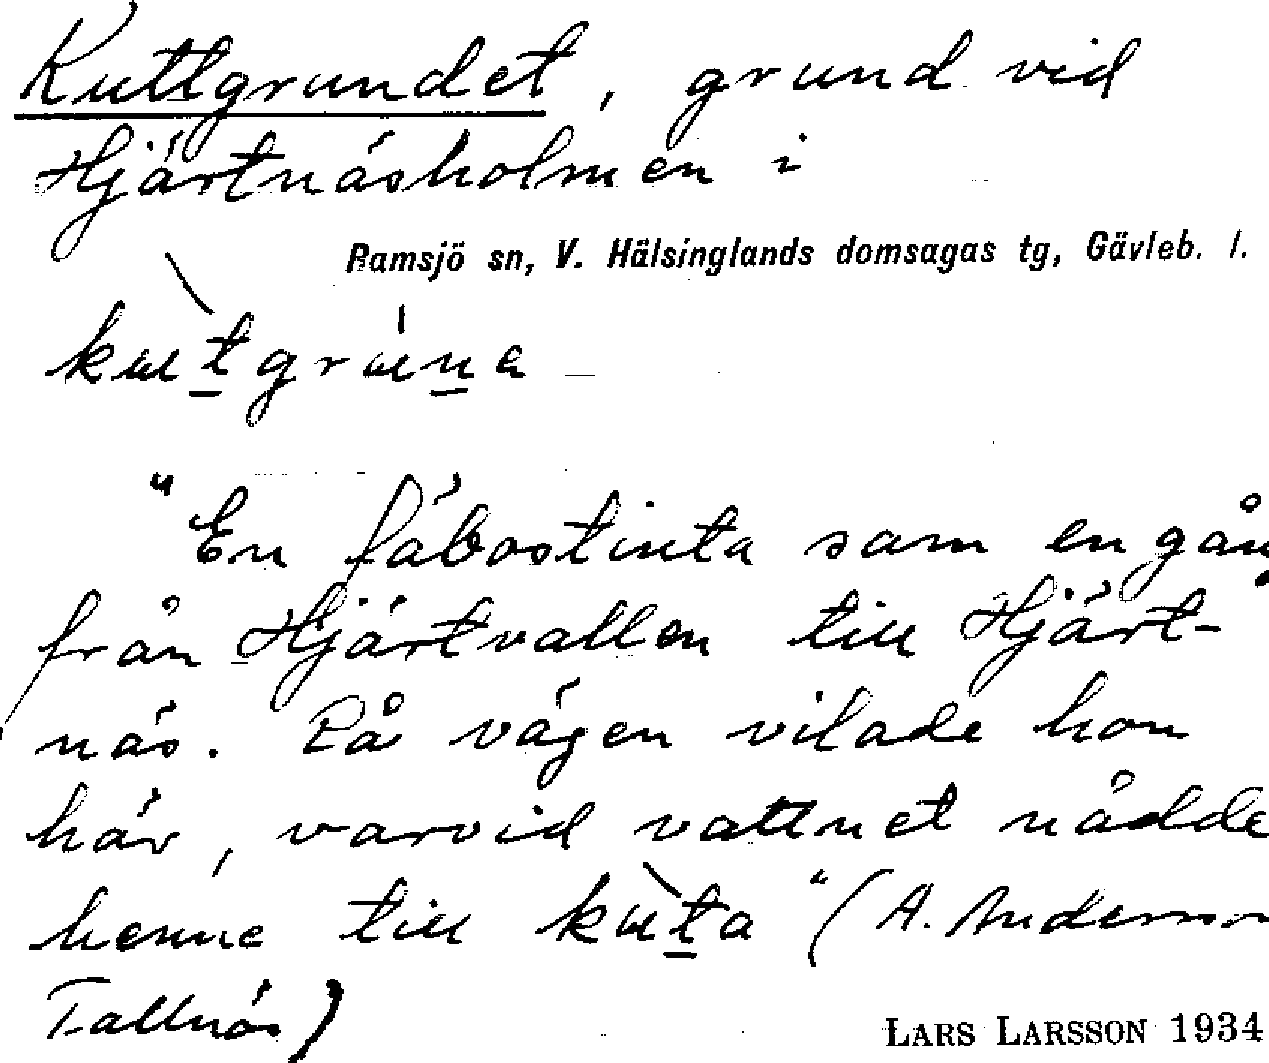 Kuttgrundet, grund vid
Hjärtnäsholmen i
Ramsjö sn, V. Hälsinglands domsagas tg, Gävleb. l.
kutgruna
"En fäbostinta sam en gång
från Hjärtvallen till Hjärt-
näs. På vägen vilade hon
här, varvid vattnet nådde
henne till kuta" (A. Andersson
Tallnäs)
LARS LARSSON 1934